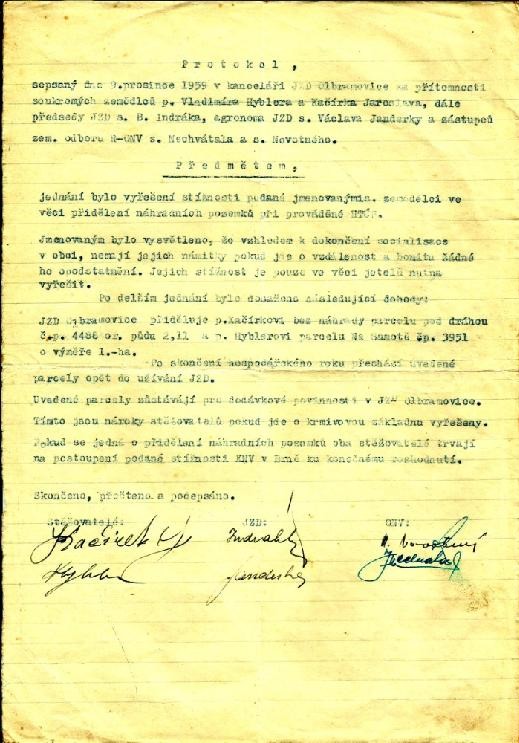 P r o t o k o l ,
sepsaný dne 9.prosince 1959 v kanceláři JZD Olbramovice za přítomnosti
soukromých zemědlců p. Vladimíra Hyblera a Kačírka Jaroslava, dále
předsedy JZD s. B. Indráka, agronoma JZD s. Václava Janderky a zástupců
zem. odboru R-ONV s. Nechvátala a s. Novotného.
P ř e d m ě t e m ,
jednání bylo vyřešení stížnosti podané jmenovanými. zemědelci ve
věci přidělení náhradních pozemků při prováděné HTÚP.
Jmenovaným bylo vysvětleno, že vzhledem k dokončení socialisace
v obci, nemají jejich námitky pokud jde o vzdálenost a bonitu žádné
ho opodstatnění. Jejich stížnost je pouze ve věci jetelů nutna
vyřešit.
Po delším jednání bylo dosaženo následující dohody:
JZD Olbramovice přiděluje p.Kačírkovi bez náhrady parcelu pod dráhou
č.p. 4486 or. půdu 2,11 a p. Hyblerovi parcelu Na Samotě čp. 3951
o výměře 1.-ha.
Po skončení hospodářského roku přechází uvedené
parcely opět do užívání JZD.
Uvedené parcely zůstávají pro dodávkové povinnosti v JZD Olbramovice.
Tímto jsou nároky stěžovatelů pokud jde o krmivovou základnu vyřešeny.
Pokud se jedná o přidělení náhradních pozemků oba stěžovatelé trvají
na postoupení podané stížnosti KNV v Brně ku konečnému rozhodnutí.
Skončeno, přečteno a podepsáno.
Stěžovatelé: JZD: ONV:
Kačírek Indrák